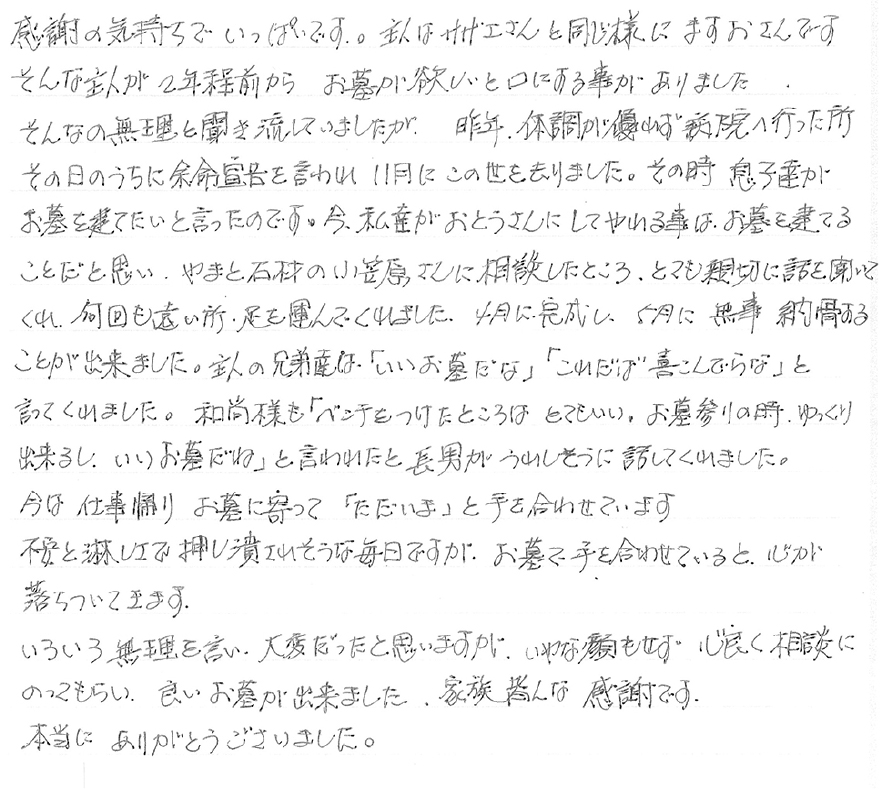 感謝の気持ちでいっぱいです。。主人はサザエさんと同じ様にますおさんです
そんな主人が2年程前から お墓が欲しいと口にする事がありました
そんなの無理と聞き流していましたが、昨年、体調が優れず病院へ行った所
その日のうちに余命宣告を言われ 11月にこの世を去りました。その時 息子達が
お墓を建てたいと言ったのです。今、私達がおとうさんにしてやれる事は、お墓を建てる
ことだと思い、やまと石材の小笠原さんに相談したところ、とても親切に話を聞いて
くれ、何回も遠い所、足を運んでくれました。4月に完成し、5月に 無事 納骨する
ことが出来ました。主人の兄弟達は、「いいお墓だな」「これだば喜こんでらな」と
言ってくれました。和尚様も「ベンチをつけたところは とてもいい。お墓参りの時、ゆっくり
出来るし、いいお墓だね」と言われたと長男がうれしそうに話してくれました。
今は 仕事帰り お墓に寄って「ただいま」と手を合わせています
不安と淋しさで押し潰されそうな毎日ですが、お墓で手を合わせていると、心が
落ちついてきます。
いろいろ無理を言い、大変だったと思いますが、いやな顔もせず 心良く相談に
のってもらい、良いお墓が出来ました、家族皆んな 感謝です。
本当に ありがとうございました。